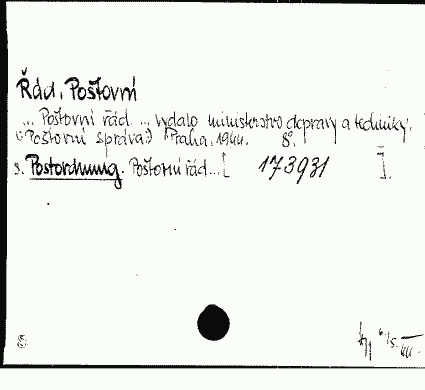 Řád, Poštovní
... Poštovní řád ... vydalo ministerstvo dopravy a techniky.
(:Poštovní správa:) Praha, 1944. 8°.
s. Postordnung. Poštovní řád...[ 173931 ].